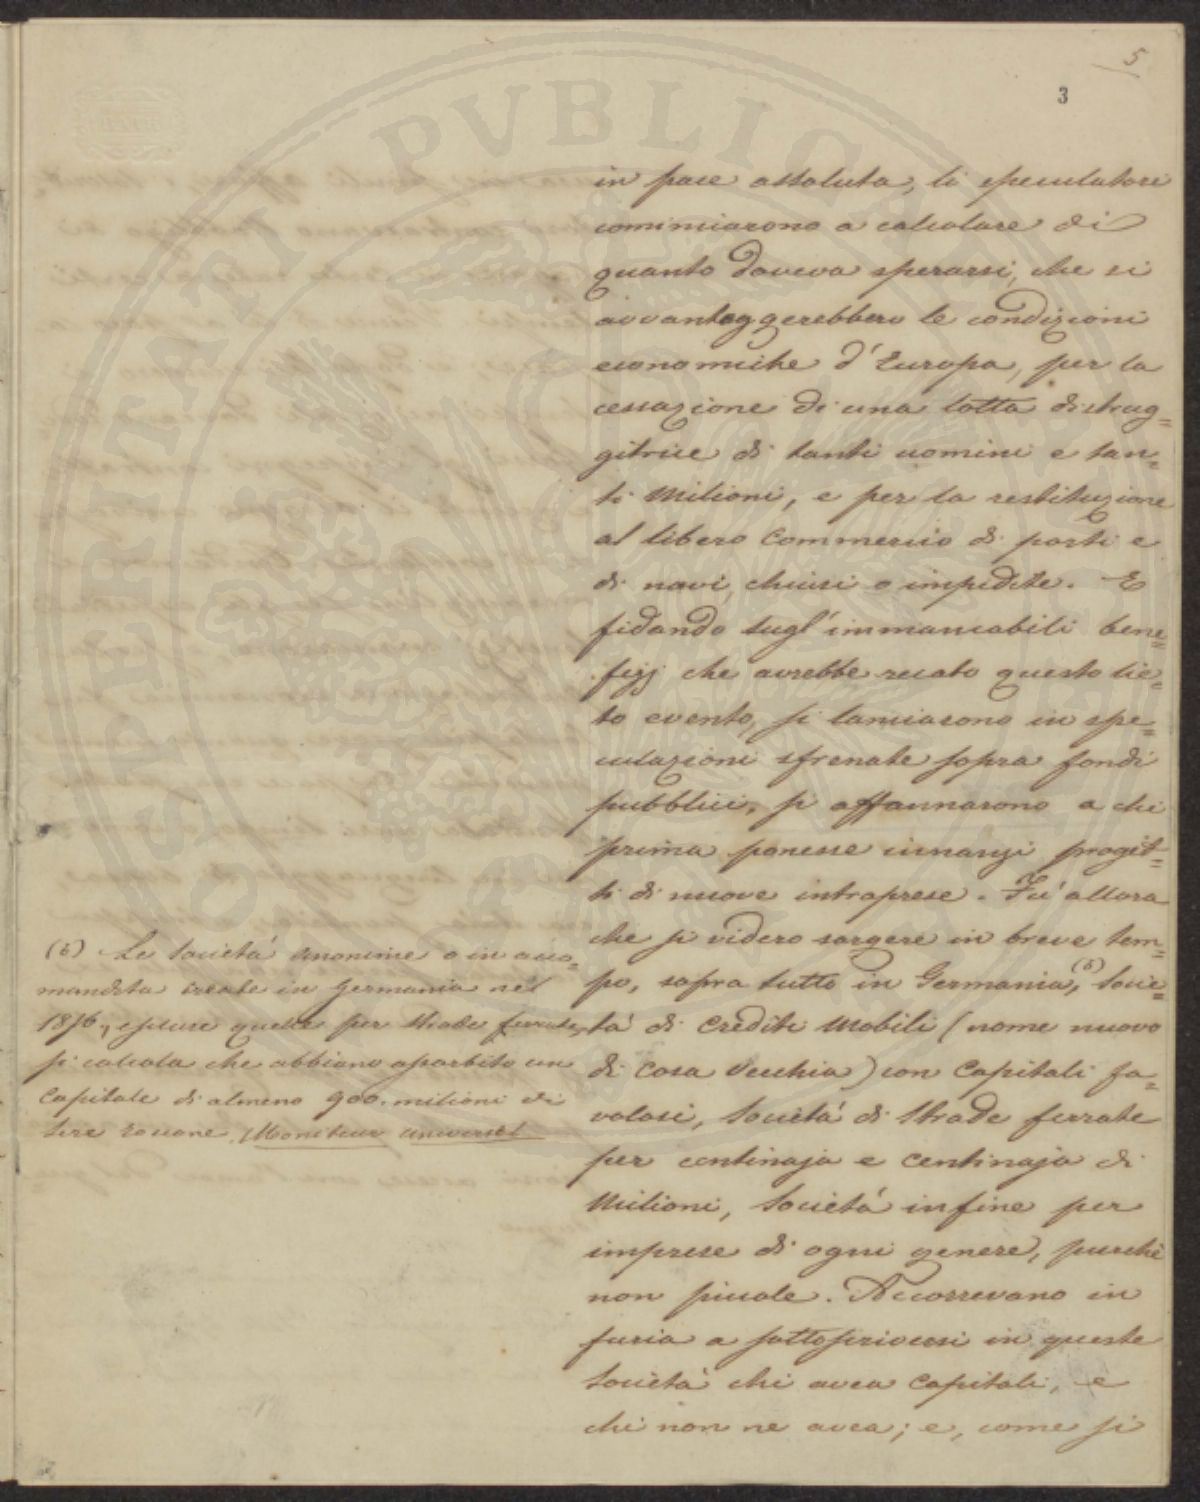 5
3
in pace assoluta, li speculatori
cominciarono a calcolare di
quanto doveva sperarsi, che si
avvantaggerebbero le condizioni
economiche d'Europa, per la
cessazione di una lotta distrug=
gitrice di tanti uomini e tan=
ti Milioni, e per la restituzione
al libero Commercio di porti e
di navi, chiusi o impedite. E
fidando sugl'immancabili bene=
fizj che avrebbe recato questo lie=
to evento, si lanciarono in spe=
culazioni sfrenate sopra fondi
pubblici, si affannarono a chi
prima ponesse innanzi proget=
ti di nuove intraprese. Fu' allora
che si videro sorgere in breve tem=
po, sopra tutto in Germania, (6) Socie=
ta' di Crediti Mobili (nome nuovo
di Cosa Vecchia) con Capitali fa=
volosi, Societá di Strade ferrate
per centinaja e Centinaja di
Milioni, Societá infine per
imprese di ogni genere, purchè
non piccole. Accorrevano in
furia a sottoscriversi in queste
Societá chi avea Capitali, e
chi non ne avea; e, come si
(6) Le Societá Anonime o in acco=
mandita create in Germania nel
1856, escluse quelle per strade ferrate,
si calcola che abbiano assorbito un
Capitale di almeno 900. milioni di
lire toscane. Moniteur universel
OSPERITATI PVBLICAE